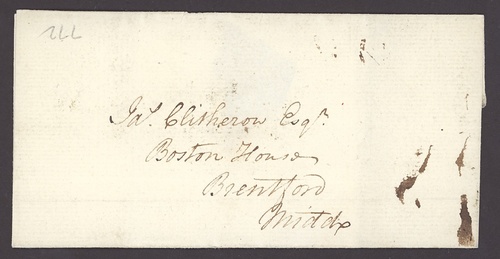 772
Jas. Clitherow Esqr.
Boston House
Brentford
Middx